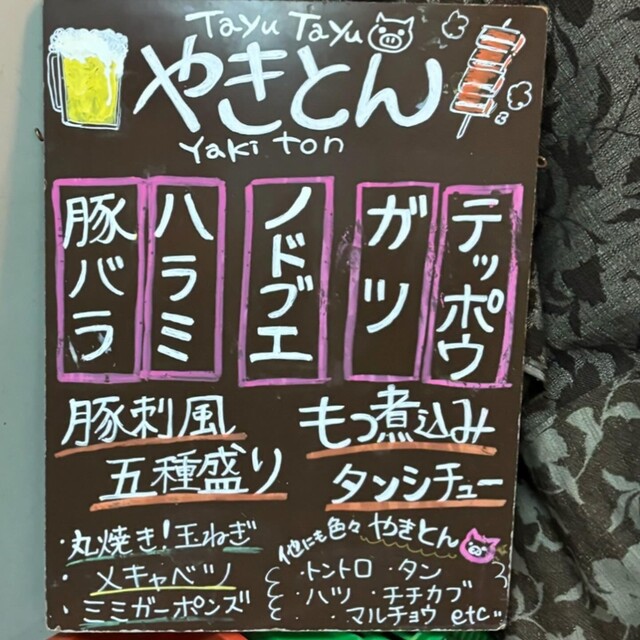 Tayu Tayu
やきとん
Yaki ton
テッポウ
ガツ
ノドブエ
ハラミ
豚バラ
豚刺風
五種盛り
もつ煮込み
タンシチュー
・丸焼き!玉ねぎ
・メキャベツ
・ミミガーポンズ
他にも色々やきとん
・トントロ ・タン
・ハツ ・チチカブ
・マルチョウ etc..